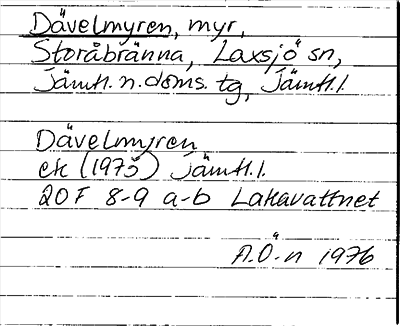 Dävelmyren, myr,
Storåbränna, Laxsjö sn,
Jämtl. n. doms. tg, Jämtl. l.
Dävelmyren
ek (1975) Jämtl. l.
20F 8-9 a-b Lakavattnet
A.Ö-n 1976